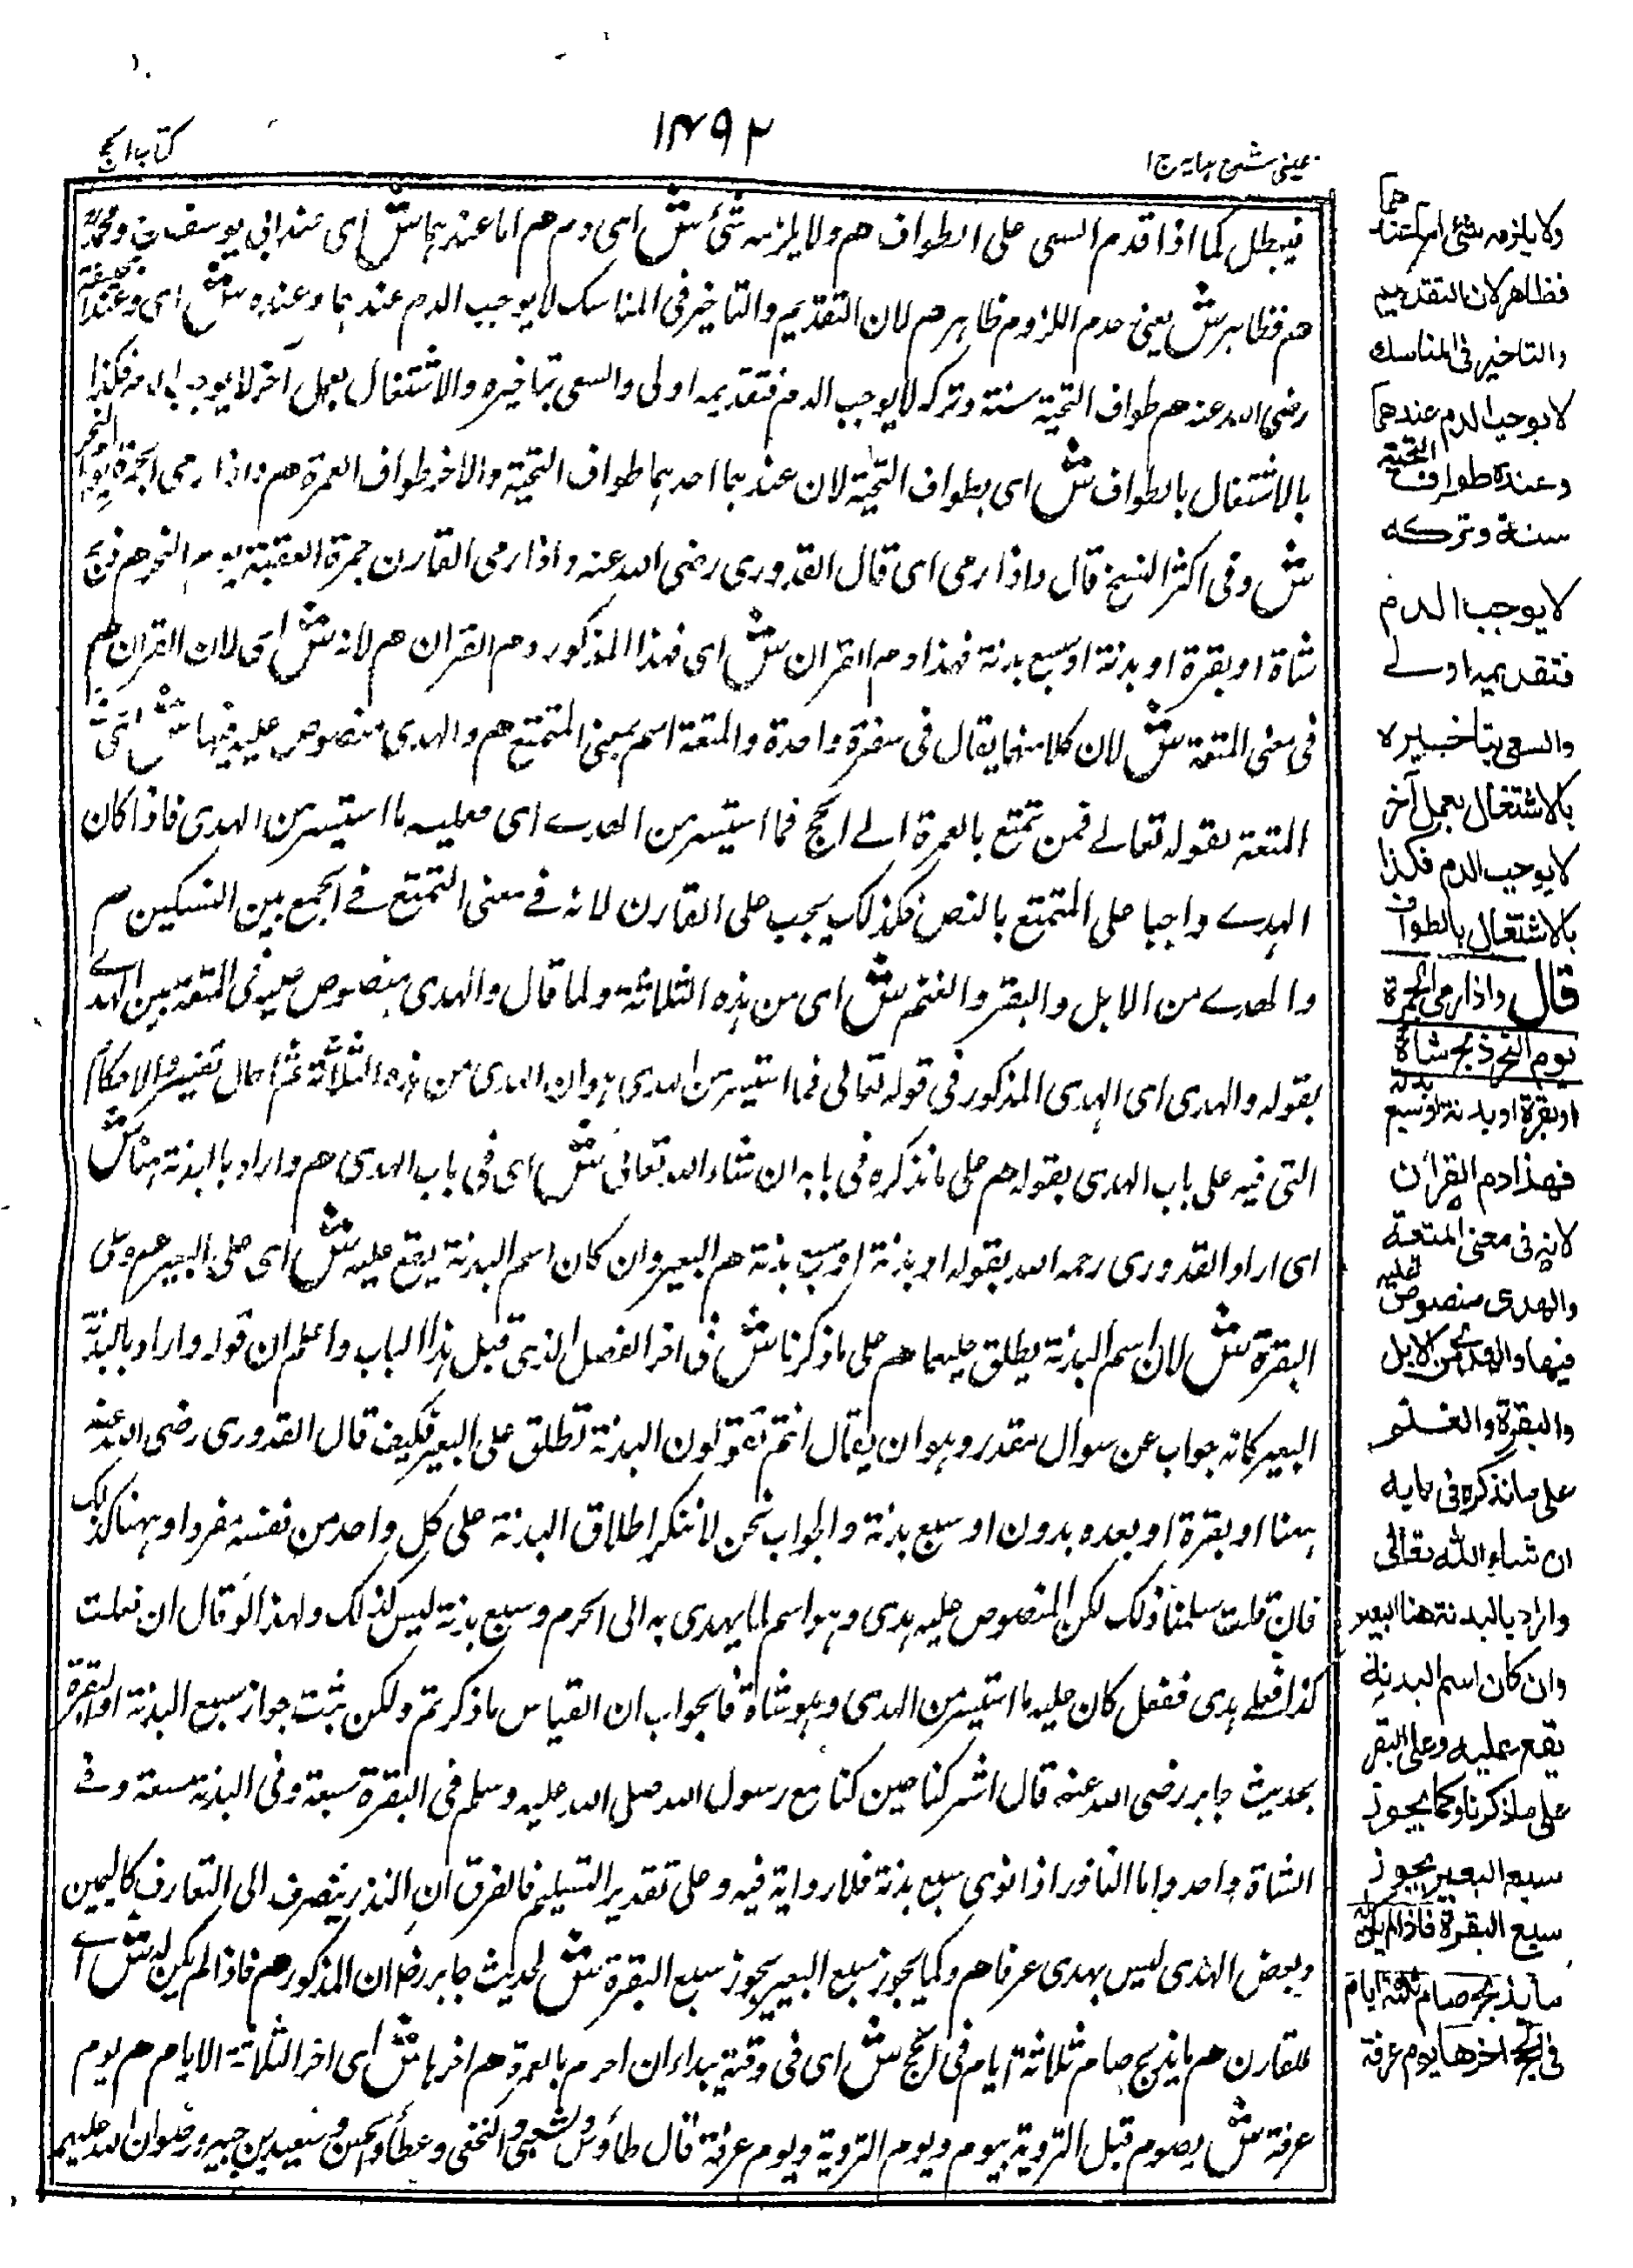 كتاب الحج
١٤٩٢
عيني شرح هدايه ج ١
فيبطل كما اذا قدم السعى على الطواف هم ولا يلزمه شئ ش اى دم هم اما عندهما ش اى عند ابى يوسف و محمد
هم فظاهر ش يعنى عدم اللزوم ظاهر هم لان التقديم والتاخير فى المناسك لا يوجب الدم عندهما وعنده ش اى وعند ابى حنيفة
رضى الله عنه هم طواف التحية سنة وتركه لا يوجب الدم فتقديمه اولى والسعى بتاخيره والاشتغال بعمل آخر لا يوجب الدم فكذا
بالاشتغال بالطواف ش اى بطواف التحية لان عندهما احدهما طواف التحية والاخر طواف العمرة هم واذا رمى الجمرة يوم النحر
ش وفى اكثر النسخ قال واذا رمى اى قال القدورى رضى الله عنه واذا رمى القارن جمرة العقبة يوم النحر هم ذبح
شاة او بقرة او بدنة او سبع بدنة فهذا دم القران ش اى فهذا المذكور دم القران هم لانه ش اى لان القران هم
فى معنى المتعة ش لان كلا منهما يقال فى سفرة واحدة والمتعة اسم بمعنى التمتع هم والهدى منصوص عليه فيها ش اى فى
المتعة بقوله تعالے فمن تمتع بالعمرة الے الحج فما استيسر من الهدے اى فعليه ما استيسر من الهدى فاذا كان
الهدے واجبا على المتمتع بالنص فكذلك يجب على القارن لانه فے معنى التمتع فے الجمع بين النسكين هم
والهدے من الابل والبقر والغنم ش اى من هذه الثلاثة ولما قال والهدى منصوص عليه فى المتعة بين الهدے
بقوله والهدى اى الهدى المذكور فى قوله تعالى فما استيسر من الهدى هو ان الهدى من هذه الثلاثة ثم احال تفسير والاحكام
التى فيه على باب الهدى بقوله هم على ما نذكره فى بابه ان شاء الله تعالى ش اى فى باب الهدى هم واراد بالبدنة هنا ش
اى اراد القدورى رحمه الله بقوله او بدنة او سبع بدنة هم البعير وان كان اسم البدنة يقع عليه ش اى على البعير هم وعلى
البقرة ش لان اسم البدنة يطلق عليهما هم على ما ذكرنا ش فى اخر الفصل الذى قبل هذا الباب واعلم ان قوله واراد بالبدنة
البعير كانه جواب عن سوال مقدر وهو ان يقال انتم تقولون البدنة تطلق على البعير فكيف قال القدورى رضى الله عنه
ههنا او بقرة او بعده بدون او سبع بدنة والجواب نحن لا ننكر اطلاق البدنة على كل واحد من نفسه مفردا وههنا كذلك
فان قلت سلمنا ذلك لكن المنصوص عليه هدى وهو اسم لما يهدى به الى الحرم وسبع بدنة ليس كذلك ولهذا لو قال ان فعلت
كذا فعلے هدى ففعل كان عليه ما استيسر من الهدى وهو شاة فالجواب ان القياس ما ذكرتم ولكن ثبت جواز سبع البدنة او البقرة
بحديث جابر رضى الله عنه قال اشركنا حين كنا مع رسول الله صلى الله عليه وسلم فى البقرة سبعة وفى البدنة سبعة وفے
الشاة واحد واما الناذر اذا نوى سبع بدنة فلا رواية فيه وعلى تقدير التسليم فالفرق ان النذر ينصرف الى التعارف كاليمين
وبعض الهدى ليس بهدى عرفا هم وكما يجوز سبع البعير يجوز سبع البقرة ش لحديث جابر رض ان المذكور هم فاذا لم يكن له ش اے
للقارن هم ما يذبح صام ثلاثة ايام فى الحج ش اى فى وقته بداء ان احرم بالعمرة هم اخرها ش اى اخر الثلاثة الايام هم يوم
عرفة ش يصوم قبل التروية بيوم ويوم التروية ويوم عرفة قال طاؤس والشعبى والنخعى وعطاء والحسن وسعيد بن جبير رضوان الله عليهم
ولا يلزمه شئ اما عندهما
فظاهر لان التقديم
والتاخير فى المناسك
لا يوجب الدم عندهما
وعنده طواف التحية
سنة وتركه
لا يوجب الدم
فتقديمه اولے
والسعى بتاخيره
بالاشتغال بعمل آخر
لا يوجب الدم فكذا
بالاشتغال بالطواف
قال واذا رمى الجمرة
يوم النحر ذبح شاة
او بقرة او بدنة او سبع بدنة
فهذا دم القران
لانه فى معنى المتعة
والهدى منصوص عليه
فيها والهدے من الابل
والبقرة والغنم
على ما نذكره فى بابه
ان شاء الله تعالى
واراد بالبدنة هنا البعير
وان كان اسم البدنة
يقع عليه وعلى البقر
على ما ذكرنا وكما يجوز
سبع البعير يجوز
سبع البقرة فاذا لم يكن له
ما يذبح صام ثلثة ايام
فى الحج اخرها يوم عرفة